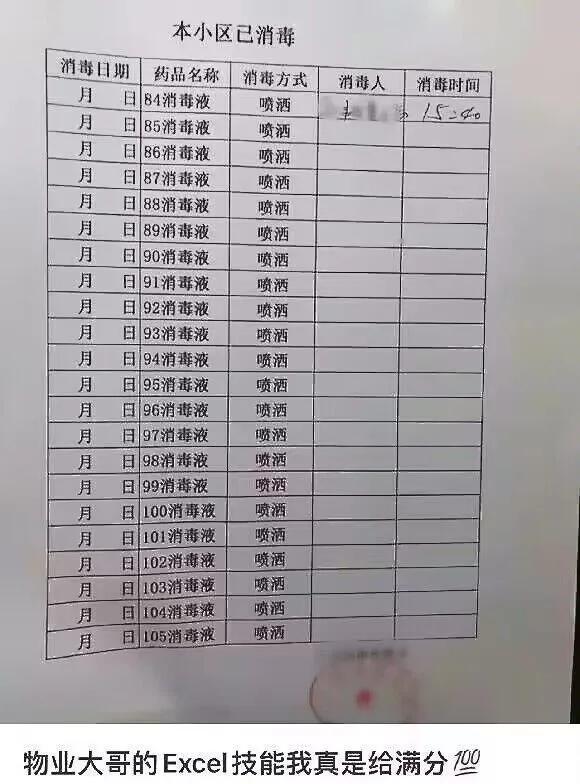 本小区已消毒
消毒日期 药品名称 消毒方式 消毒人 消毒时间
月 日 84消毒液 喷洒 15:40
月 日 85消毒液 喷洒
月 日 86消毒液 喷洒
月 日 87消毒液 喷洒
月 日 88消毒液 喷洒
月 日 89消毒液 喷洒
月 日 90消毒液 喷洒
月 日 91消毒液 喷洒
月 日 92消毒液 喷洒
月 日 93消毒液 喷洒
月 日 94消毒液 喷洒
月 日 95消毒液 喷洒
月 日 96消毒液 喷洒
月 日 97消毒液 喷洒
月 日 98消毒液 喷洒
月 日 99消毒液 喷洒
月 日 100消毒液 喷洒
月 日 101消毒液 喷洒
月 日 102消毒液 喷洒
月 日 103消毒液 喷洒
月 日 104消毒液 喷洒
月 日 105消毒液 喷洒
物业大哥的Excel技能我真是给满分💯